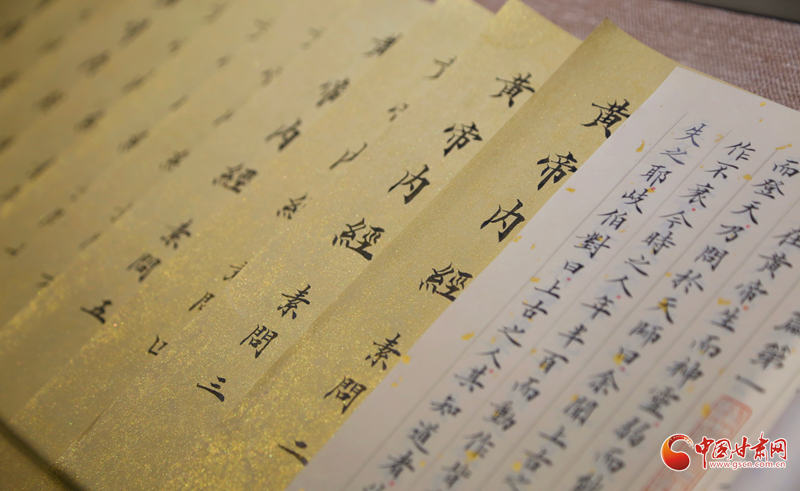 篇第一
在黃帝生而神靈弱而能
而登天乃問於天師曰余聞上古之
作不衰今時之人年半百而動作皆
失之耶岐伯對曰上古之人其知道者
黃帝內經 素問 二
黃帝內經 素問 三
帝內經 素問 五
中国甘肃网
www.gscn.com.cn